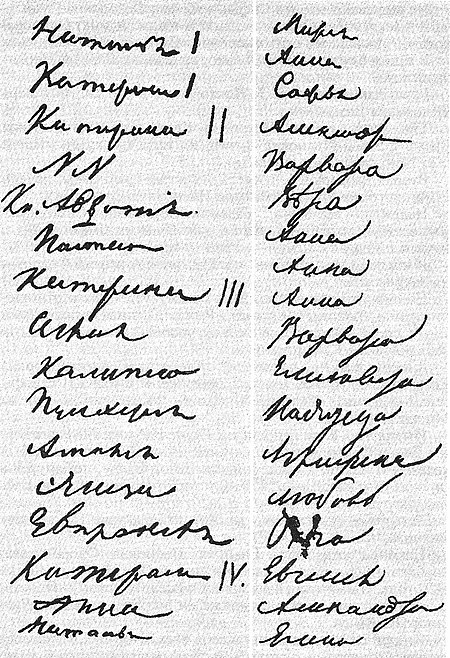 Наталья I
Катерина I
Катерина II
NN
Кн. Авдотия.
Настасья
Катерина III
Аглая
Калипсо
Пулхерия
Амалия
Элиза
Евпраксея
Катерина IV.
Анна
Наталья
Мария
Анна
Софья
Александра
Варвара
Вѣра
Анна
Анна
Анна
Варвара
Елизавета
Надежда
Аграфена
Любовь
Ольга
Евгения
Александра
Елена